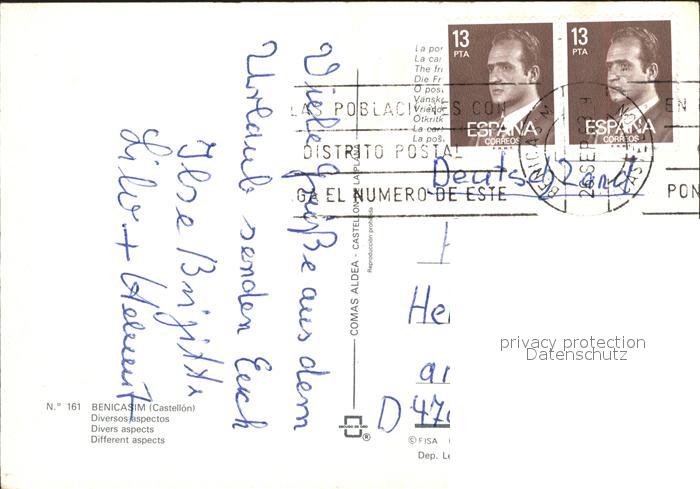 Viele Grüße aus dem
Urlaub senden Euch
Ilse Brigitte
Lilo + Helmut
N.° 161 BENICASIM (Castellón)
Diversos aspectos
Divers aspects
Different aspects
COMAS ALDEA - CASTELLON
Reproducción prohibida
ESCUDO DE ORO
®
© FISA
Dep. Le
La por
La car
The fr
Die Fr
O pos
Vansk
Otkritk
La car
La pos
13 PTA
ESPAÑA
CORREOS
13 PTA
ESPAÑA
CORREOS
LAS POBLACIONES CON
DISTRITO POSTAL
GA EL NUMERO DE ESTE
EN
PON
BENICASIM
26 SEP
Deutschland
He
an
D 47
privacy protection
Datenschutz